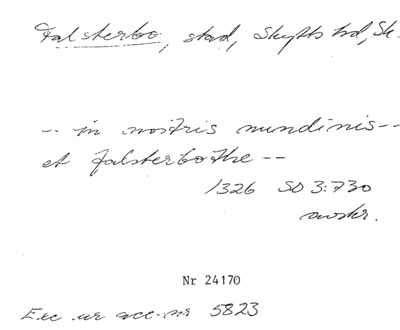 Falsterbo, stad, Skytts hd, Sk.
-- in nostris nundinis --
et falsterbothe --
1326 SD 3:730
avskr.
Nr 24170
Exc. ur acc.nr 5823